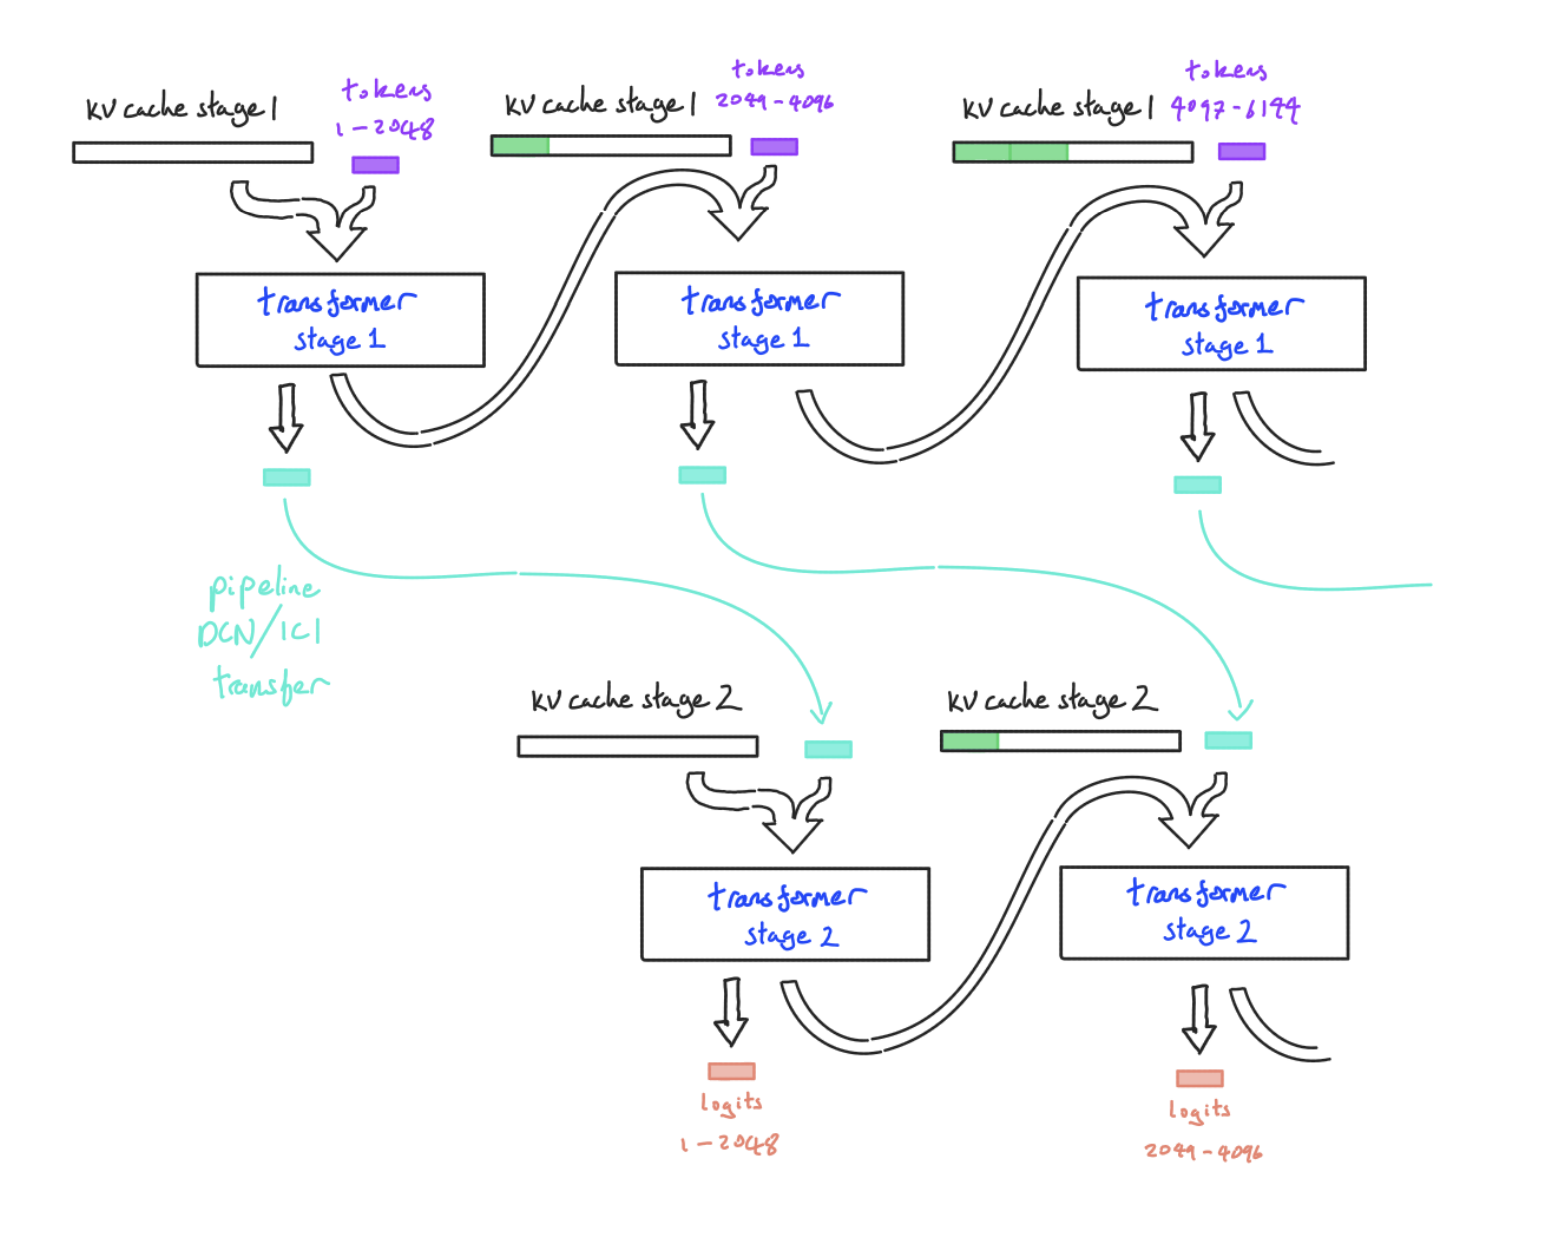 KV cache stage 1
tokens
1-2048
KV cache stage 1
tokens
2049-4096
KV cache stage 1
tokens
4097-6144
transformer
stage 1
transformer
stage 1
transformer
stage 1
pipeline
DCN/ICI
transfer
KV cache stage 2
KV cache stage 2
transformer
stage 2
transformer
stage 2
logits
1-2048
logits
2049-4096